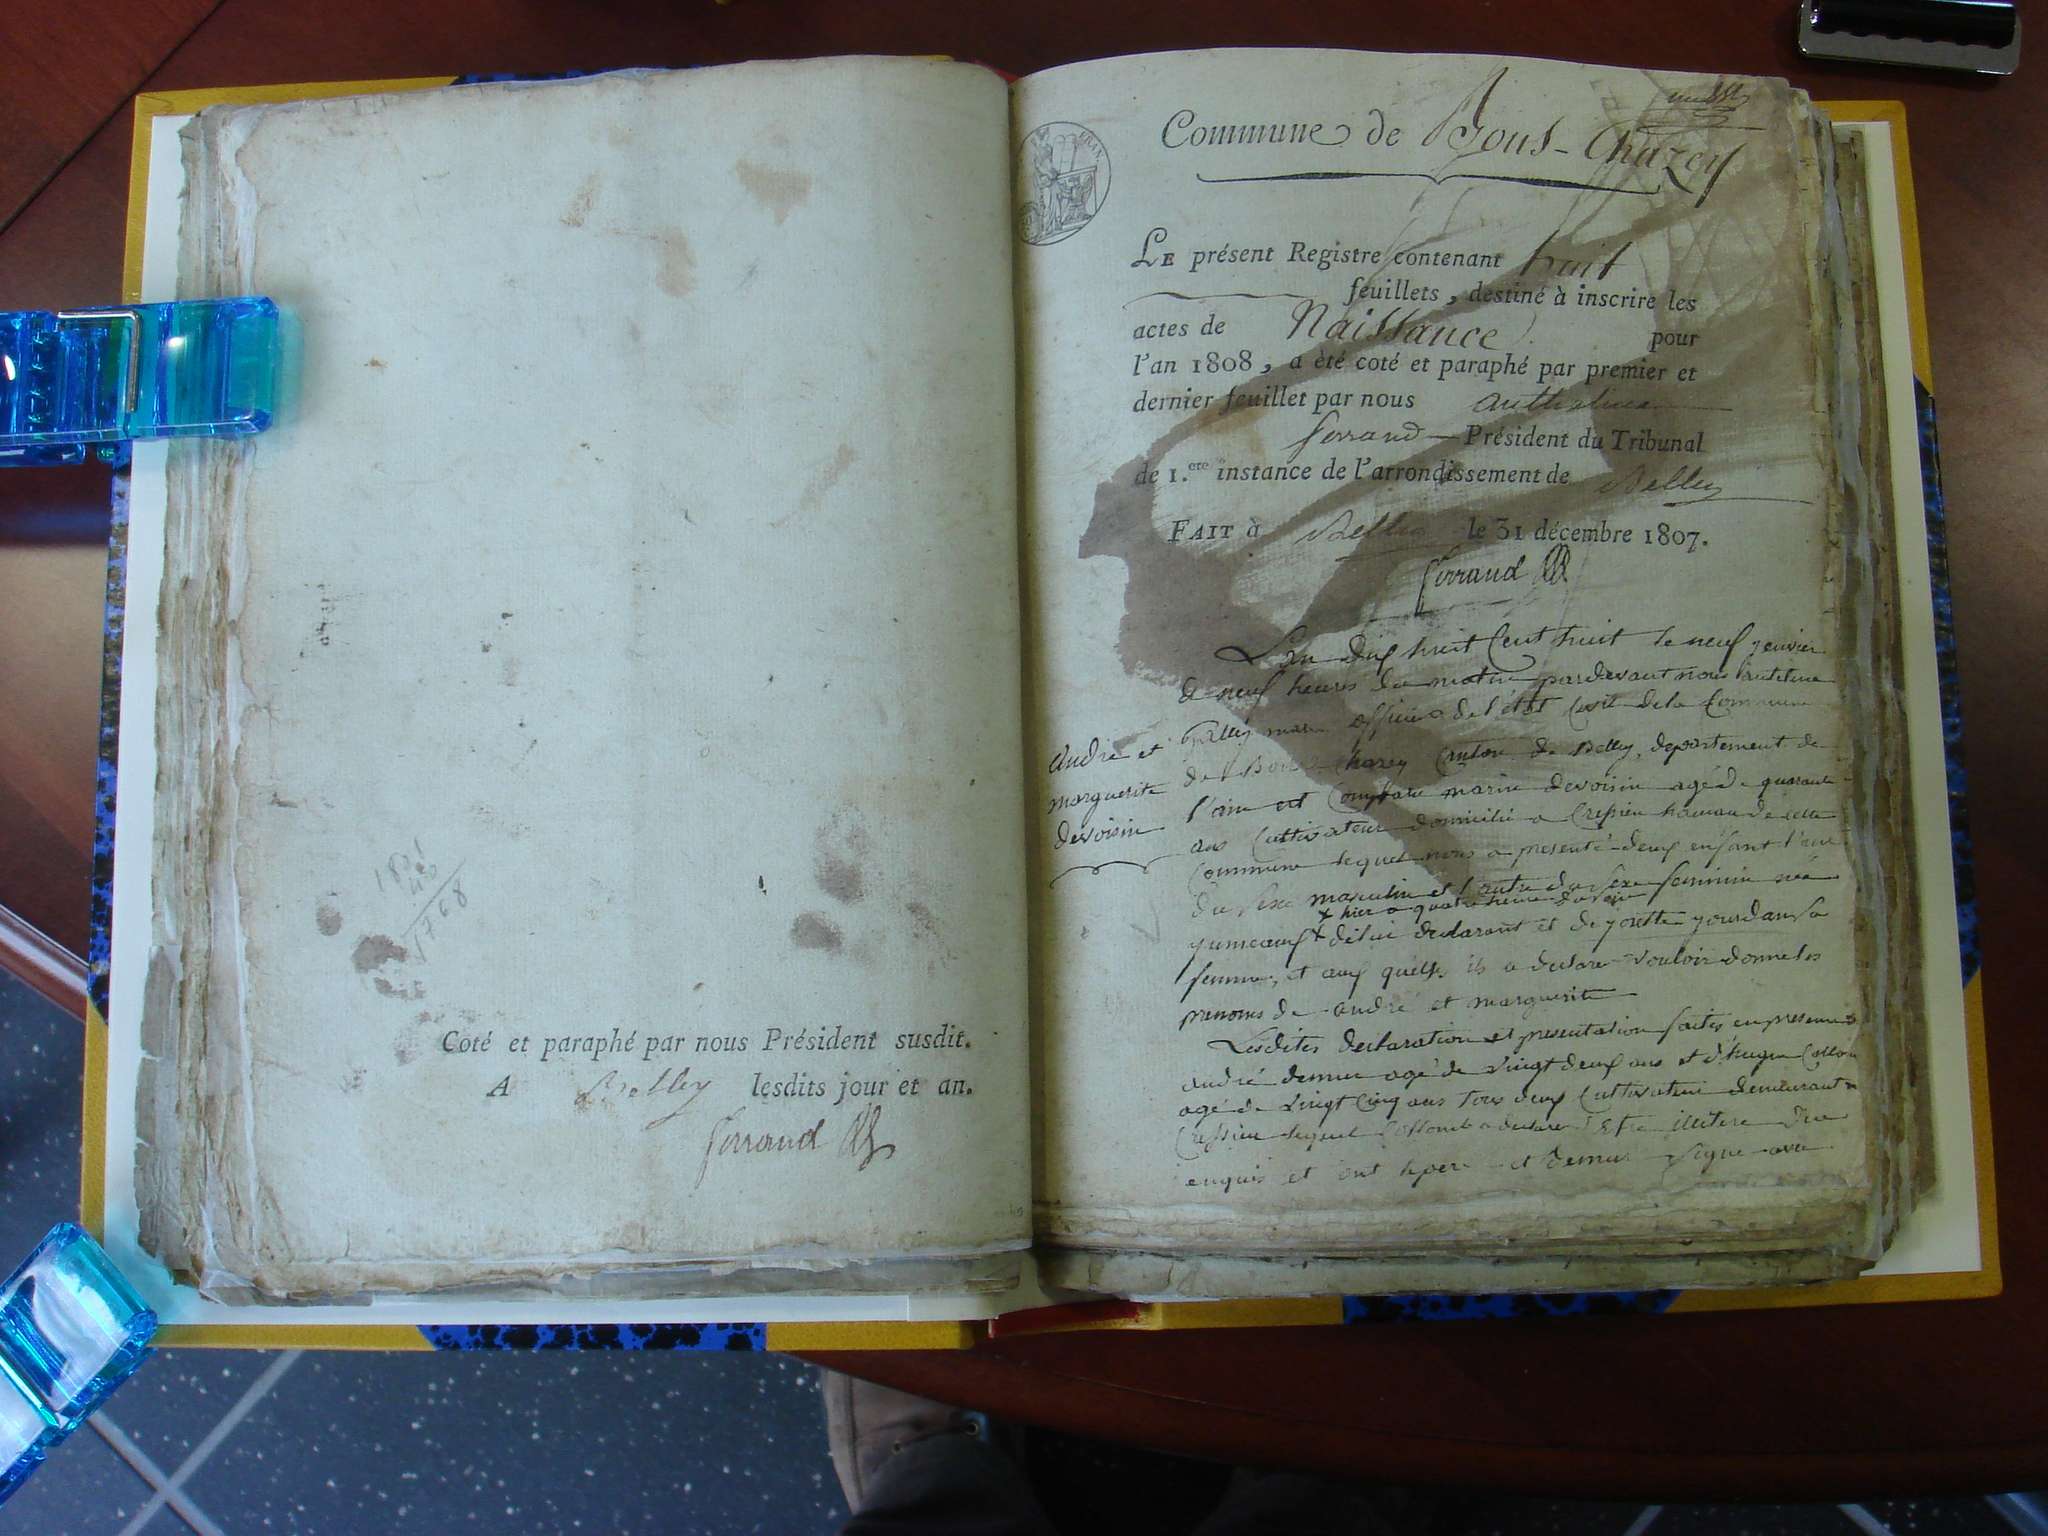 1808
40
1768
Coté et paraphé par nous Président susdit.
A Belley lesdits jour et an.
ferrand
Commune de Bons-Chazey
LE présent Registre contenant huit
feuillets, destiné à inscrire les
actes de Naissance pour
l'an 1808, a èté coté et paraphé par premier et
dernier feuillet par nous anthelme
ferrand Président du Tribunal
de 1.ere instance de l'arrondissement de Belley
FAIT à Belley le 31 décembre 1807.
ferrand
andré et
marguerite
devoisin
L'an dix huit Cent huit le neuf janvier
a neuf heures du matin pardevant nous antelme
maire officier de l'état Civil de la Commune
de Bons Chazey Canton de Belley departement de
l'ain est Comparu marin devoisin agé de quarante
ans Cultivateur domicilié a Cressieu hameau de cette
Commune lequel nous a presenté deux enfant l'un
du sexe masculin et l'autre du sexe feminin née
x hier a quatre heure du soir
jumeaux x de lui declarant et de josette jourdan sa
femme, et aux quelts ils a declaré vouloir donne les
prenoms de andré et marguerite
Lesdites declaration et presentation faites en presence
andré demur agé de vingt deux ans et d'hugue
agé de vingt Cinq ans tous deux Cultivateur demeurant a
Cressieu lequel a declare Estre illitere de
enquis et ont et demur signe avec